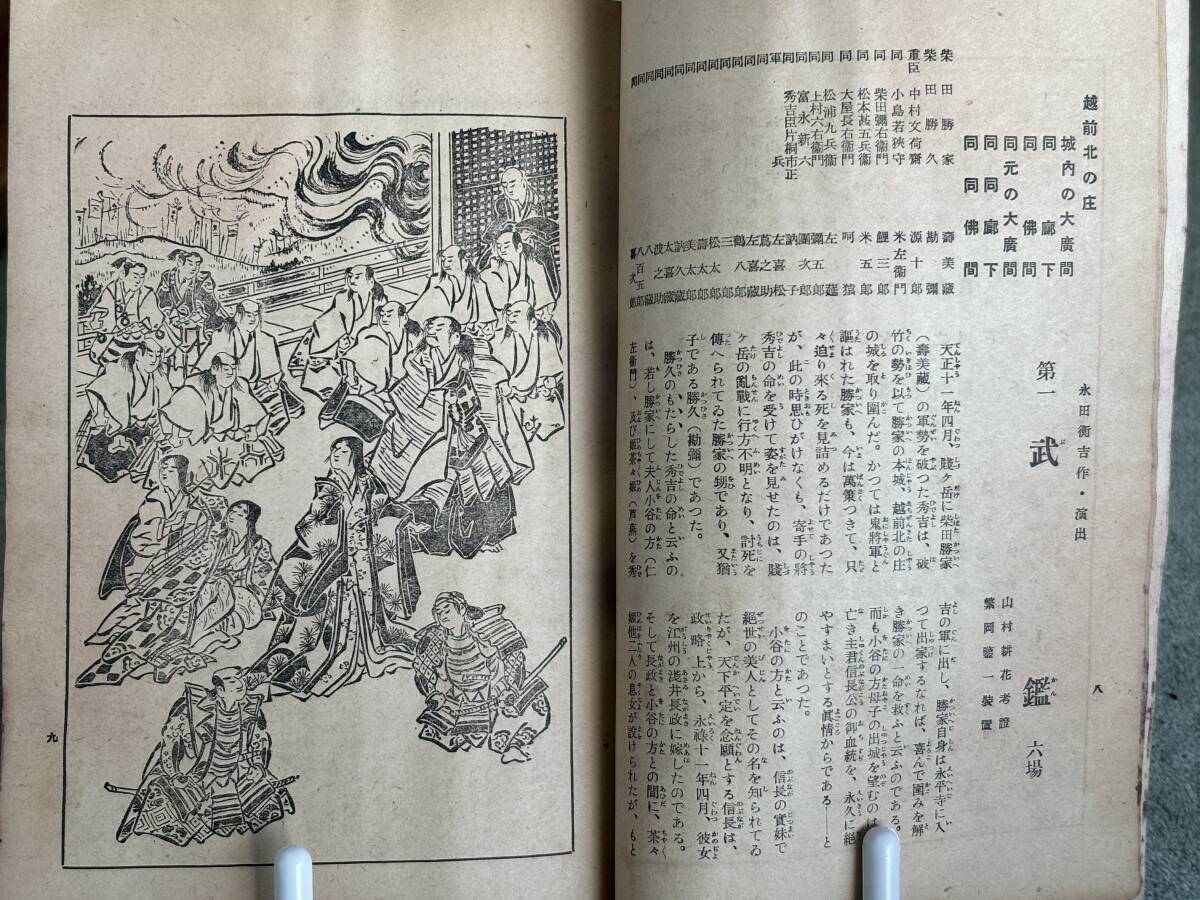 八
第一 武鑑 六場
永田衡吉作・演出
山村耕花考證
繁岡鑒一装置
越前北の庄
城内の大廣間
同 廊下
同 佛間
同元の大廣間
同 同 廊下
同 同 佛間
柴田勝家 壽美藏
柴田勝久 勘彌
重臣 中村文荷齋 源十郎
同 小島若狹守 米左衞門
同 柴田彌右衞門 鯉三郎
同 松本甚五兵衞 米五郎
同 大屋長右衞門 呵猿
同 松浦九兵衞 左莚
同 上村六右衞門 彌五郎
同 富永新六 團次郎
軍兵 訥子
秀吉臣片桐市正 左喜松
同 蔦之助
同 左喜藏
同 鶴八
天正十一年四月、賤ヶ岳に柴田勝家
(壽美藏)の軍勢を破つた秀吉は、破
竹の勢を以て勝家の本城、越前北の庄
の城を取り圍んだ。かつては鬼將軍と
謳はれた勝家も、今は萬策つきて、只
々迫り來る死を見詰めるだけであつた
が、此の時思ひがけなくも、寄手の將
秀吉の命を受けて姿を見せたのは、賤
ヶ岳の亂戰に行方不明となり、討死を
傳へられてゐた勝家の甥であり、又猶
子である勝久(勘彌)であつた。
勝久のもたらした秀吉の命と云ふの
は、若し勝家にして夫人小谷の方(仁
左衞門)、及び姫茶々姫(芦燕)を秀
吉の軍に出し、勝家自身は永平寺に入
つて出家するなれば、喜んで圍みを解
き勝家の一命を救ふと云ふのである。
而も小谷の方母子の出城を望むのは
亡き主君信長公の御血統を、永久に絶
やすまいとする眞情からである――と
のことであつた。
小谷の方と云ふのは、信長の實妹で
絶世の美人としてその名を知られてゐ
たが、天下平定を念願とする信長は、
政略上から、永祿十一年四月、彼女
を江州の淺井長政に嫁したのである。
そして長政と小谷の方との間に、茶々
姫他二人の息女が設けられたが、もと
九